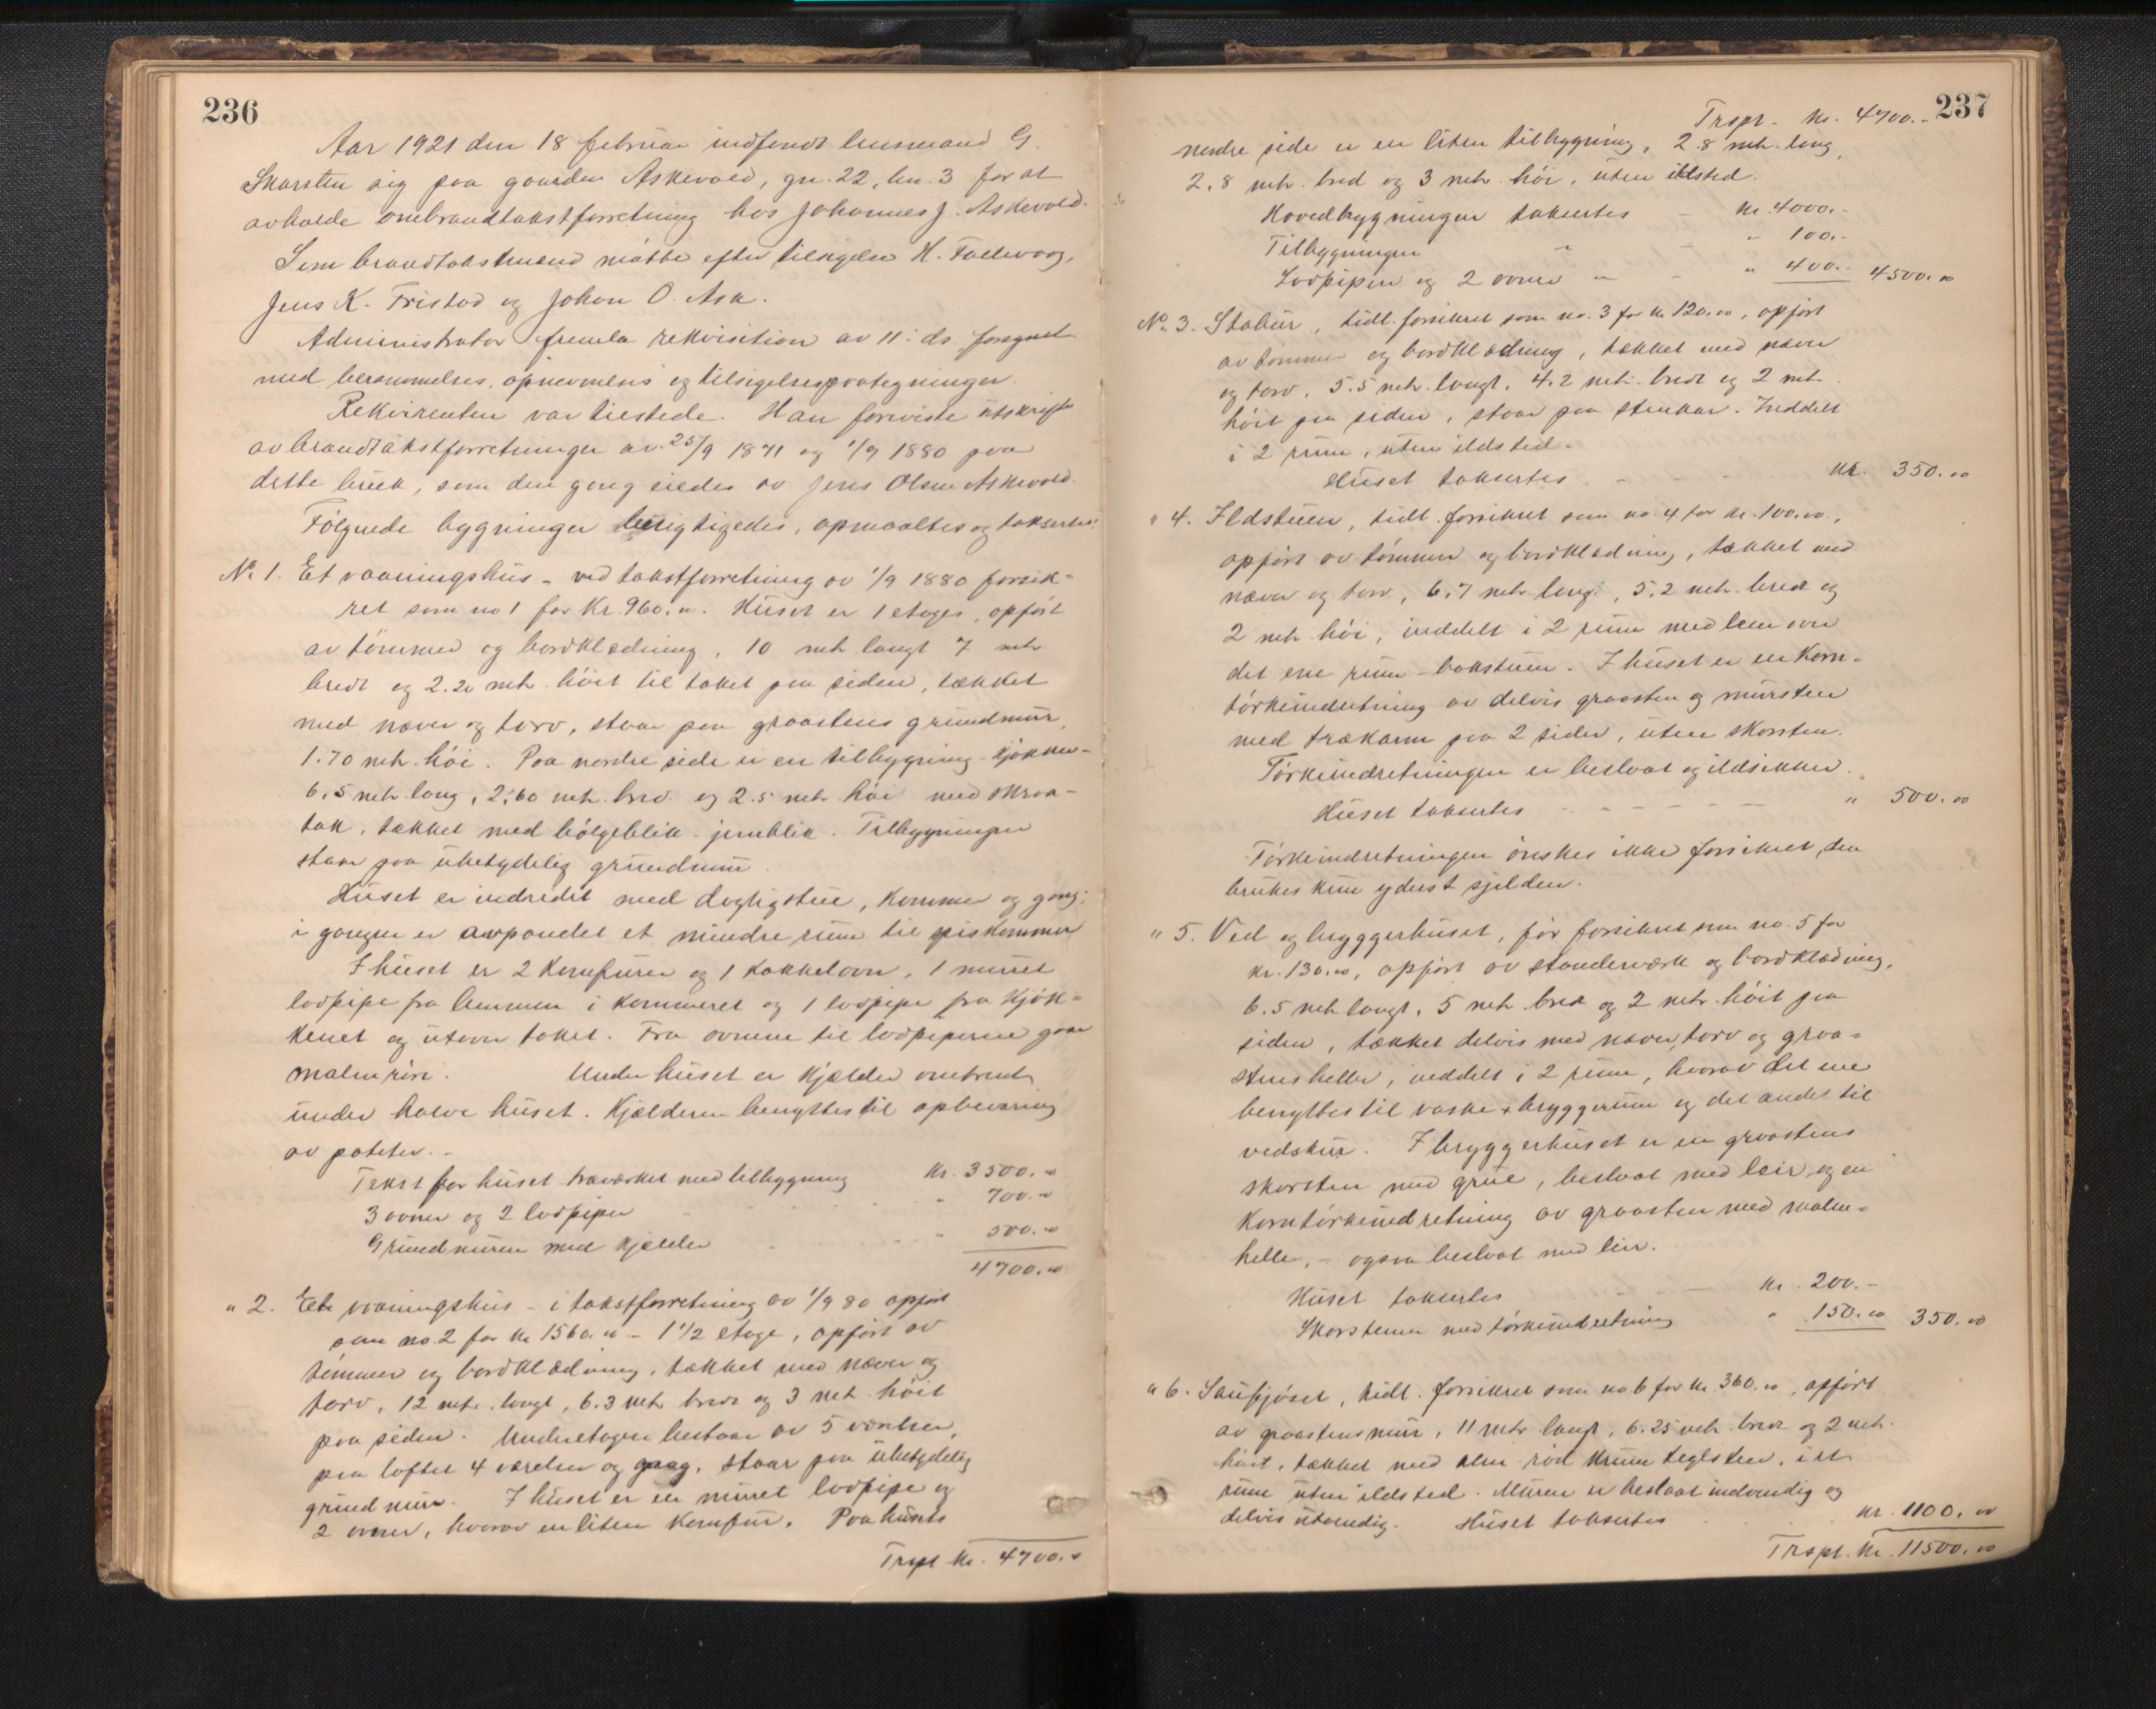 236
Aar 1921 den 18 februar indfandt lensmand G.
Skarsten sig paa gaarden Askevold, gn. 22, bn. 3 for at
avholde ombrandtakstforretning hos Johannes J. Askevold.
Som brandtakstmænd møtte efter tilsigelse H. Fallevaag,
Jens K. Fristad og Johan O. Ask.
Administrator fremla rekvisition av 11. ds. forsynet
med berammelses, opnevnelses og tilsigelsespaategninger.
Rekvirenten var tilstede. Han foreviste utskrift
av brandtakstforretninger av 25/9 1871 og 1/9 1880 paa
dette bruk, som den gang eiedes av Jens Olsen Askevold.
Følgende bygninger besigtigedes, opmaaltes og taksertes:
No. 1. Et vaaningshus - ved takstforretning av 1/9 1880 forsik-
ret som no 1 for Kr. 960.00. Huset er 1 etages, opført
av tømmer og bordklædning, 10 mtr. langt 7 mtr.
bredt og 2.20 mtr. høit til taket paa siden, tækket
med næver og torv, staar paa graastens grundmur,
1.70 mtr. høi. Paa nordre side er en tilbygning - kjøkken -
6,5 mtr. lang, 2,60 mtr. bred og 2.5 mtr. høi med skraa-
tak, tækket med bølgeblik - jernblik. Tilbygningen
staar paa ubetydelig grundmur.
Huset er indredet med dagligstue, kammer og gang;
i gangen er avpanelet et mindre rum til spiskammer
I huset er 2 komfurer og 1 kakkelovn, 1 muret
lodpipe fra lemmen i kammeret og 1 lodpipe fra kjøk-
kenet og utover taket. Fra ovnene til lodpiperne gaar
malmrør. Under huset er kjælder omtrent
under halve huset. Kjælderen benyttes til opbevaring
av poteter.
Takst for huset træværket med tilbygning Kr. 3500.00
3 ovner og 2 lodpiper " 700.00
Grundmuren med kjælder " 500.00
4700.00
" 2. Et vaaningshus - i takstforretning av 1/9 80 opført
som no. 2 for kr 1560.00 - 1 1/2 etage, opført av
tømmer og bordklædning, tækket med næver og
torv, 12 mtr. langt, 6.3 mtr. bredt og 3 mtr. høit
paa siden. Underetagen bestaar av 5 værelser,
paa loftet 4 værelser og gang, staar paa ubetydelig
grundmur. I huset er en muret lodpipe og
2 ovner, hvorav en liten komfur. Paa husets
Trspt. kr. 4700.00
237
Trspt - kr. 4700.-
nordre side er en liten tilbygning, 2.8 mtr. lang,
2,8 mtr. bred og 3 mtr. høi, uten ildsted.
Hovedbygningen taksertes - kr. 4000.-
Tilbygningen " - " 100.-
Lodpipen og 2 ovner " - " 400.- 4500.00
No. 3. Stabur, tidl. forsikret som no. 3 for kr 120.00, opført
av tømmer og bordklædning, tækket med næver
og torv, 5.5 mtr. langt, 4.2 mtr. bredt og 2 mtr.
høit paa siden, staar paa stenkar. Inddelt
i 2 rum, uten ildsted.
Huset taksertes - - - kr. 350.00
" 4. Ildstuen, tidl. forsikret som no. 4 for kr. 100.00,
opført av tømmer og bordklædning, tækket med
næver og torv, 6.7 mtr. lang, 5.2 mtr. bred og
2 mtr. høi, inddelt i 2 rum med lem over
det ene rum - bakstuen. I huset er en korn-
tørkeindretning av delvis graasten og mursten
med trækarm paa 2 sider, uten skorsten.
Tørkeindretningen er beslaat og ildsikker.
Huset taksertes - - - - - " 500.00
Tørkeindretningen ønskes ikke forsikret, den
brukes kun yderst sjelden.
" 5. Ved og bryggerhuset, før forsikret som no. 5 for
kr. 130.00, opført av standerværk og bordklædning,
6.5 mtr. langt, 5 mtr. bred og 2 mtr. høit paa
siden, tækket delvis med næver, torv og graa-
stens heller, inddelt i 2 rum, hvorav det ene
benyttes til vaske & bryggerum og det andet til
vedskur. I bryggerhuset er en graastens
skorsten med grue, beslaat med leir, og en
korntørkeindretning av graasten med malm-
helle, - ogsaa beslaat med leir.
Huset taksertes - kr. 200.-
Skorstenen med tørkeindretning " 150.00 350.00
" 6. Saufjøset, tidl. forsikret som no 6 for kr. 360.00, opført
av graastensmur, 11 mtr. langt, 6.25 mtr. bredt og 2 mtr.
høit, tækket med rød krum teglsten, i et
rum uten ildsted. Muren er beslaat indvendig og
delvis utvendig. Huset taksertes kr. 1100.00
Trspt. kr. 11500.00